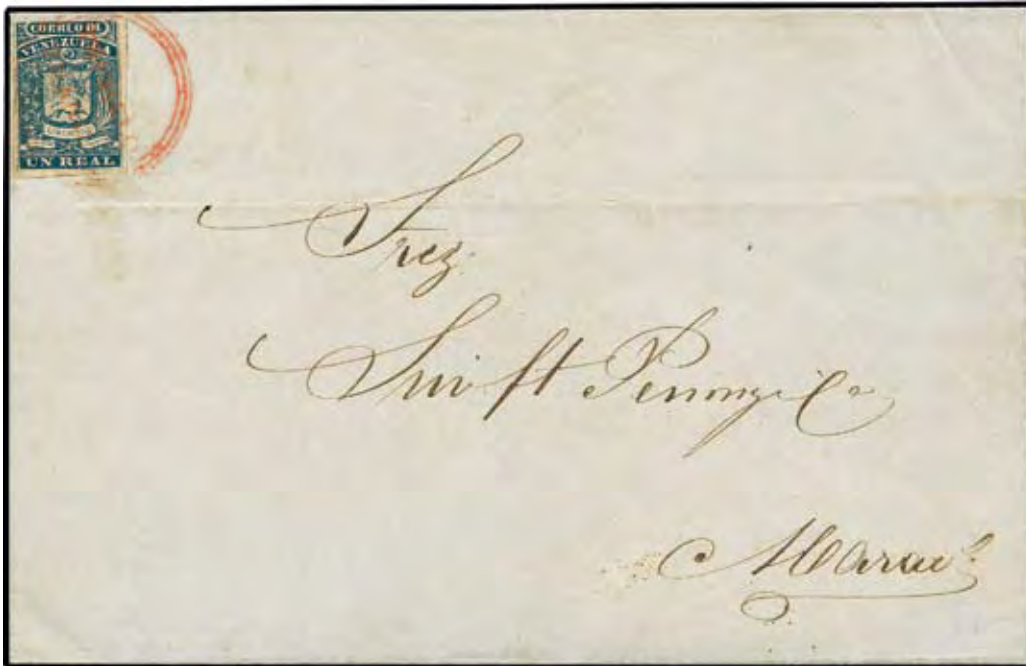 CORREO DE
VENEZUELA
LIBERTAD
UN REAL
Srez
Swift Penny i Ca
Maracº